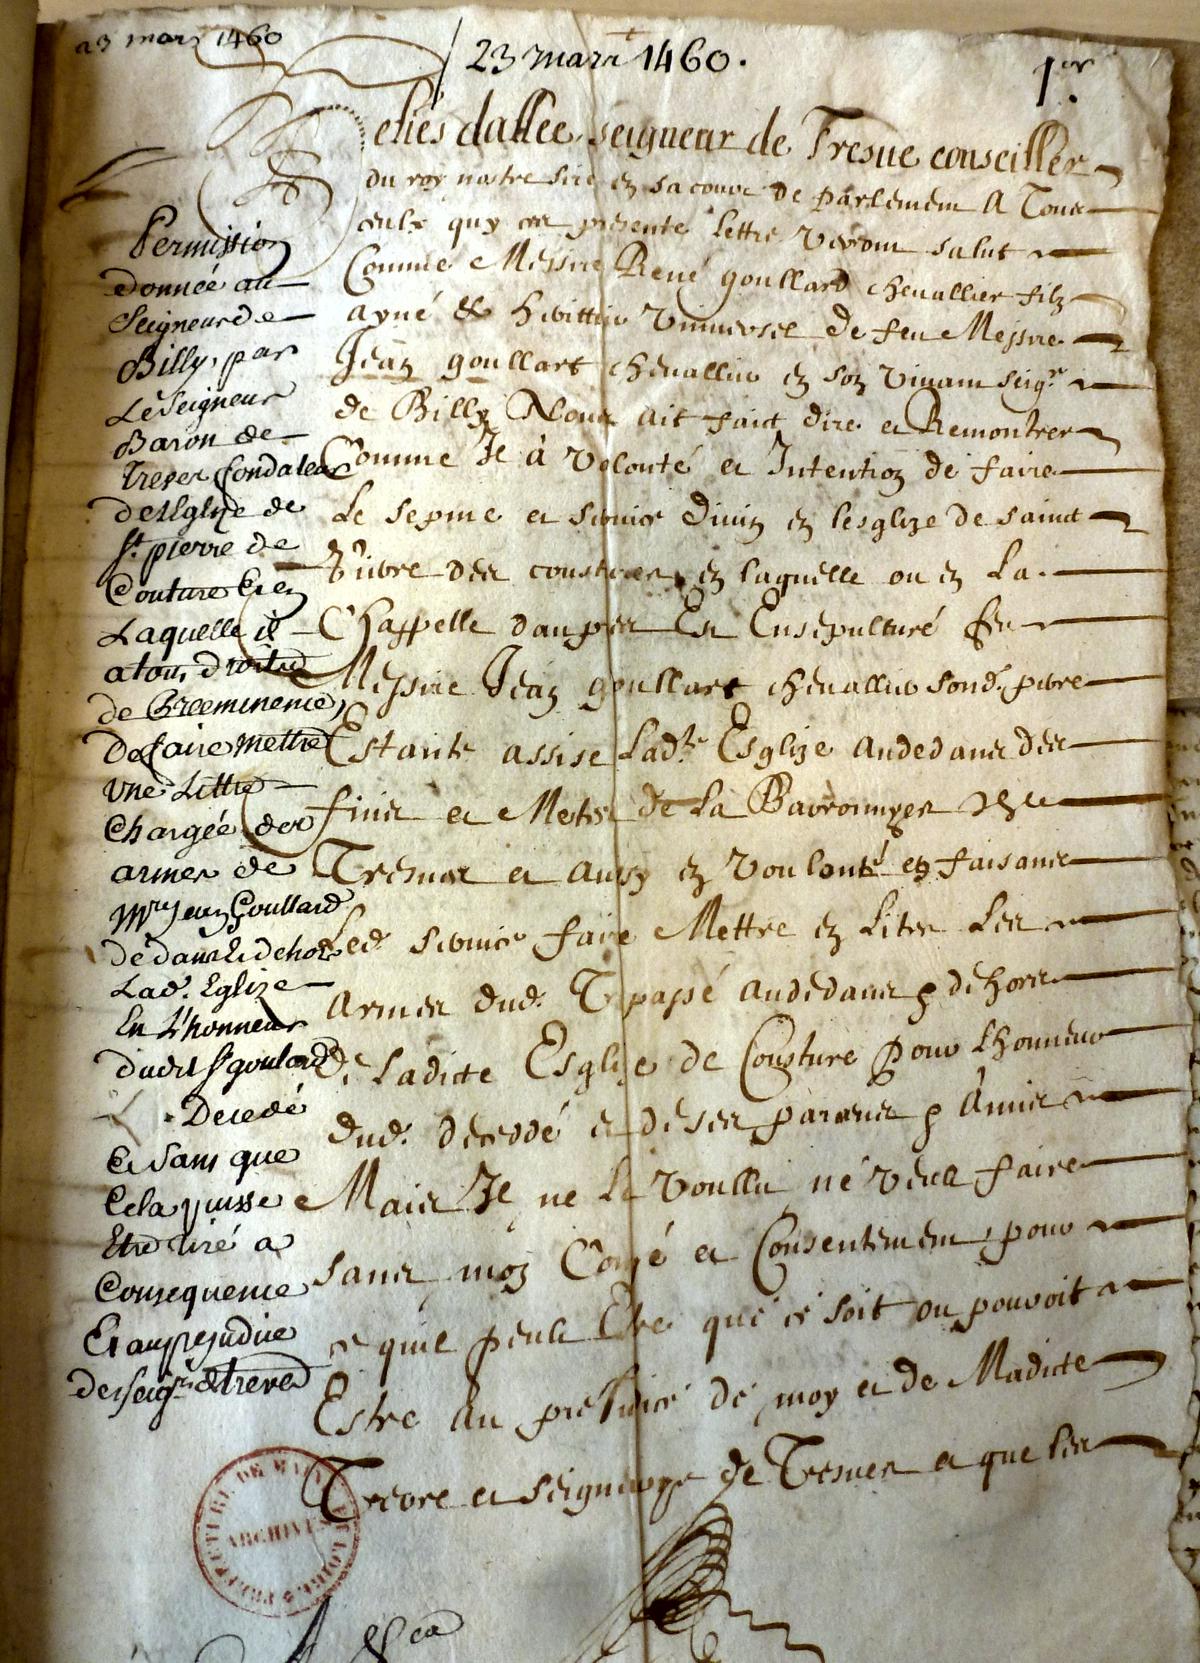 23 mars 1460
23 mars 1460.
1er
Helies dallee seigneur de Tresve conseiller
du roy nostre sire en sa cour de parlement A Tous
ceulx quy ces presente lettre verront salut
Comme Messire René goullard chevallier filz
ayné & hérittier Universel de feu Messire
Jean goullart chevallier en son vivant seigr
de Billy Nous ait faict dire et Remontrer
Comme Il à volonté et Intention de faire
Le sepme et service divin en lesglize de sainct
Pierre des coustures en laquelle ou en La
Chappelle daupres Est Ensepulturé feu
Messire Jean goullart chevallier sond. pere
Estante assise Ladte Esglize audedans des
fins et Metes de La Baronnyes
Tresves et aussy en voulonté en faisant
Led. service faire Mettre en Litre Les
Armes dud. Trepassé audedans & dehors
De Ladicte Esglize de Cousture pour Lhonneur
dud. deceddé et de ses parans & Amis
Mais Il ne La voullu ne veult faire
sans moy Congé et Consentement pour
ce quil peult Estre que ce soit ou pouvoit
Estre Au prejudice de moy et de Madicte
Terre et seigneurye de Tresves et que les
Permission
donnée au
Seigneur de
Billy, par
Le Seigneur
Baron de
Treves fondateur
de lEglise de
St. pierre de
Couture Et en
Laquelle il
a tous droits
de Preeminence,
de faire mettre
une Littre
Chargée des
armes de
Mre Jean Goullard
dedans & dehors
Lad. Eglize
En L'honneur
dudit Sr goulard
Decedé
Et sans que
Cela puisse
Etre tiré a
Consequence
Et au prejudice
des seigrs de treves
PREFECTURE DE MAINE ET LOIRE
ARCHIVES